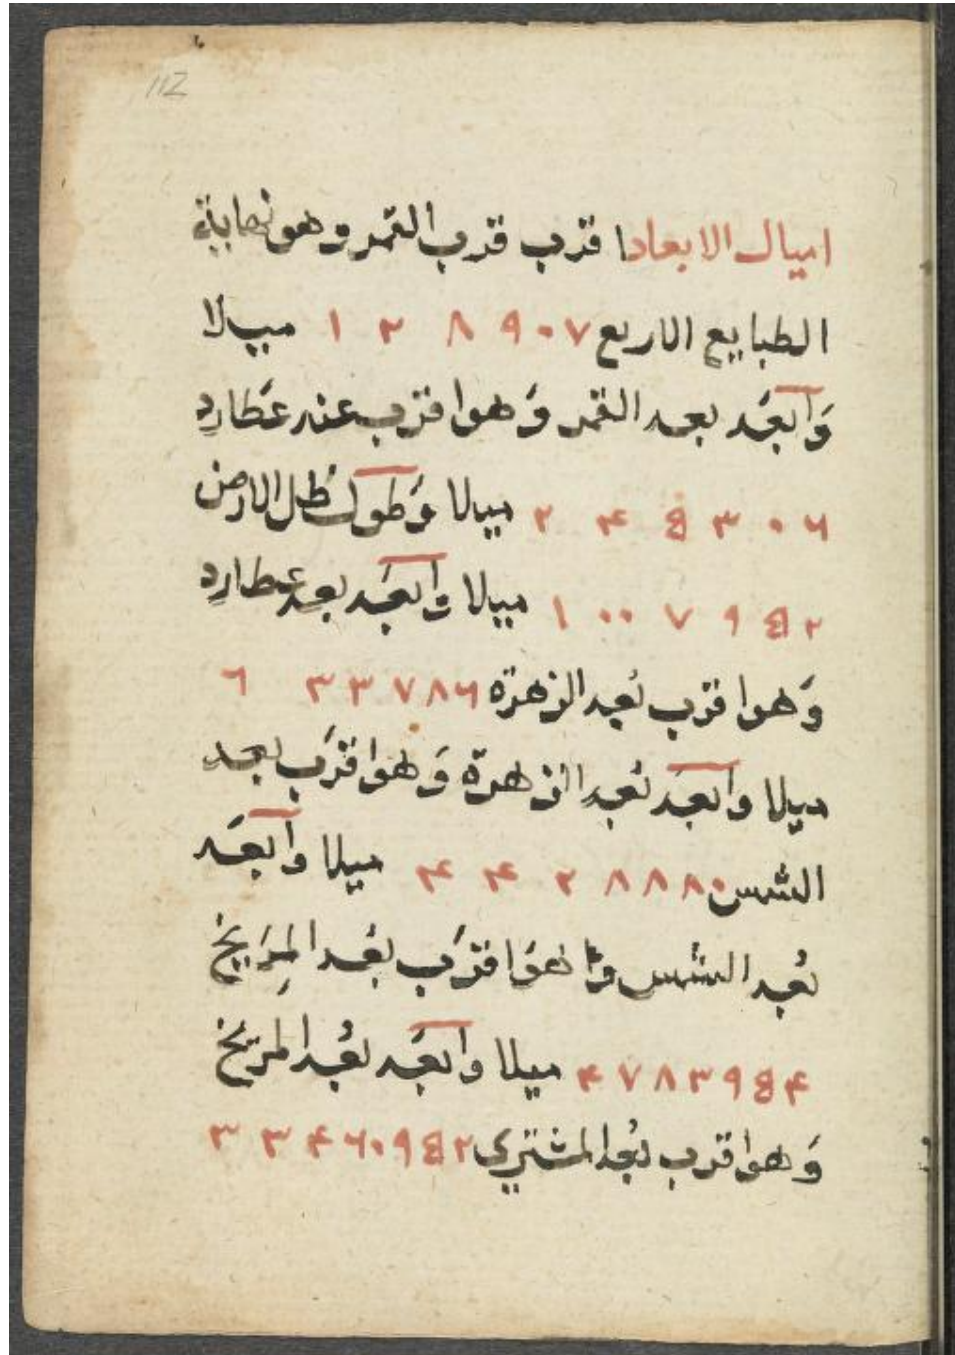 112
اميال الابعاد اقرب قرب القمر وهو نهاية
الطبايع الاربع ١ ٢ ٨ ٩٠٧ ميلا
وَابعَد بعد القمر وَهوا قرب عند عَطارد
٢ ۴ ٥ ٣ ٠ ٦ ميلا وَطول ظل الارض
١ ٠٠ ٧ ٩ ٥٢ ميلا وابعَد بعد عطارد
وَهوا قرب بُعد الزهرة ٦ ٣ ٣٧٨٦
ميلا وابعَد بُعد الزهرة وَهوا قرَب بعد
الشمس ۴ ۴ ٢ ٨ ٨٨٠ ميلا وابعَد
بُعد الشمس وهوَا قرَب بعُد المِرَيخ
۴٧٨٣٩٥۴ ميلا وابعَد بعُد المريخ
وَهوا قرب بعُد المشتري ٣ ٣ ۴٦٠٩٥٢